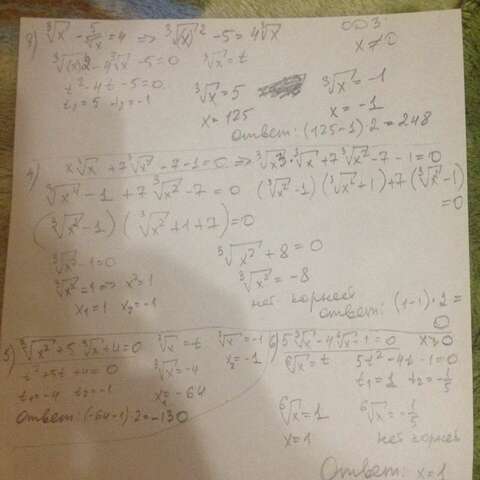 3) ∛x - 5/∛x = 4 => ∛(x)² - 5 = 4∛x
ОДЗ:
x ≠ 0
∛(x)² - 4∛x - 5 = 0 ∛x = t
t² - 4t - 5 = 0
t₁ = 5 t₂ = -1
∛x = 5 ∛x = -1
x = 125 x = -1
ответ: (125-1)·2 = 248
4) x∛x + 7∛x² - 7 - 1 = 0 => ∛x³·∛x + 7∛x² - 7 - 1 = 0
∛x⁴ - 1 + 7∛x² - 7 = 0 (∛x² - 1)(∛x² + 1) + 7(∛x² - 1) = 0
(∛x² - 1)(∛x² + 1 + 7) = 0
∛x² - 1 = 0 ∛x² + 8 = 0
∛x² = 1 => x² = 1 ∛x² = -8
x₁ = 1 x₂ = -1 нет корней
ответ: (1-1)·2 = 0
5) ∛x² + 5∛x + 4 = 0 ∛x = t ∛x = -1
t² + 5t + 4 = 0 ∛x = -4 x₂ = -1
t₁ = -4 t₂ = -1 x₁ = -64
ответ: (-64-1)·2 = -130
6) 5∛x - 4⁶√x - 1 = 0 x ≥ 0
⁶√x = t 5t² - 4t - 1 = 0
t₁ = 1 t₂ = -1/5
⁶√x = 1 ⁶√x = -1/5
x = 1 нет корней
Ответ: x = 1